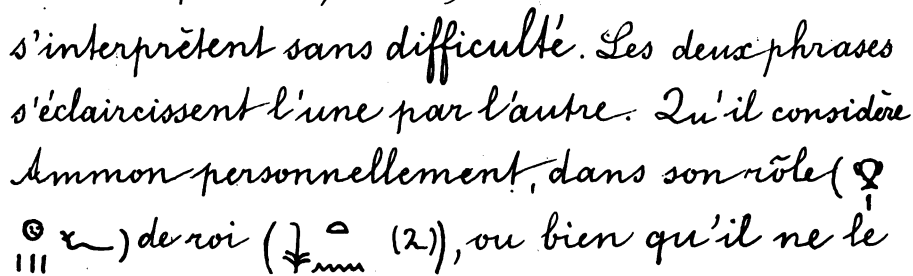 s'interprètent sans difficulté. Les deux phrases
s'éclaircissent l'une par l'autre. Qu'il considère
Ammon personnellement, dans son rôle (
) de roi ( (2)), ou bien qu'il ne le